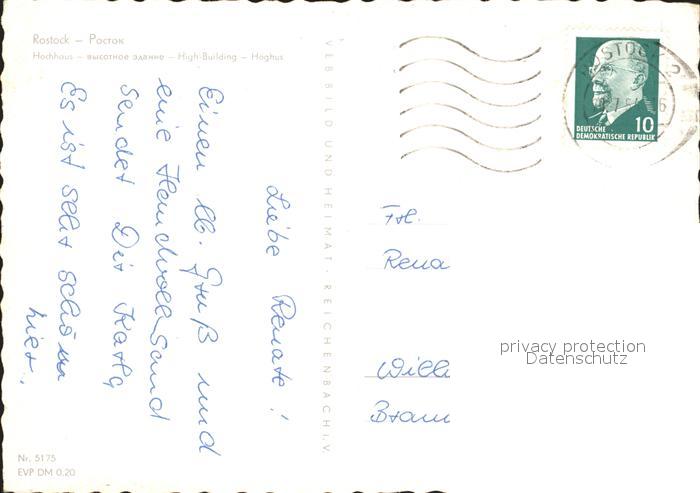 Rostock – Росток
Hochhaus – высотное здание – High-Building – Höghus
Liebe Renate!
Einen lb. Gruß und
eine Handvoll Sand
sendet Dir Kathy
Es ist sehr schön
hier.
VEB BILD UND HEIMAT · REICHENBACH I. V.
ROSTOCK 2
DEUTSCHE
DEMOKRATISCHE REPUBLIK
10
Frl.
Rena
Willi
Bram
privacy protection
Datenschutz
Nr. 5175
EVP DM 0,20